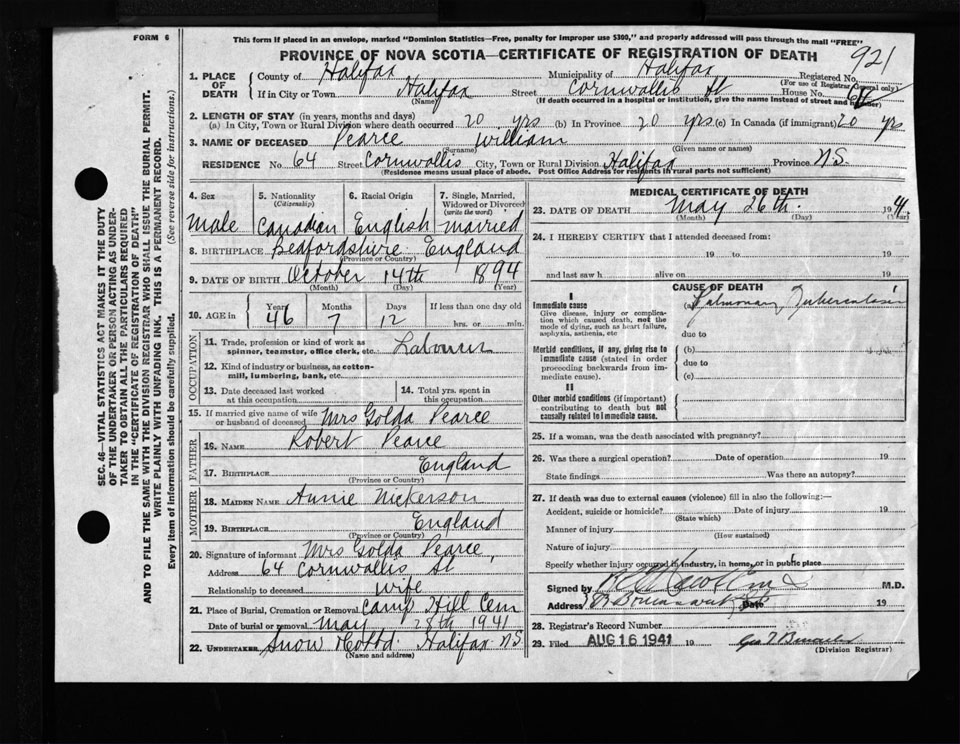 FORM 6
This form if placed in an envelope, marked "Dominion Statistics—Free, penalty for improper use $300," and properly addressed will pass through the mail "FREE"
PROVINCE OF NOVA SCOTIA—CERTIFICATE OF REGISTRATION OF DEATH
921
1. PLACE OF DEATH
County of Halifax Municipality of Halifax Registered No.
(For use of Registrar General only)
If in City or Town Halifax Street Cornwallis St House No. 64
(Name) (If death occurred in a hospital or institution, give the name instead of street and number)
2. LENGTH OF STAY (in years, months and days)
(a) In City, Town or Rural Division where death occurred 20 yrs (b) In Province 20 yrs (c) In Canada (if immigrant) 20 yrs
3. NAME OF DECEASED Pearce William
(Surname) (Given name or names)
RESIDENCE No 64 Street Cornwallis City, Town or Rural Division Halifax Province N.S.
(Residence means usual place of abode. Post Office Address for residents in rural parts not sufficient)
4. Sex Male
5. Nationality (Citizenship) Canadian
6. Racial Origin English
7. Single, Married, Widowed or Divorced (write the word) Married
8. BIRTHPLACE Bedfordshire England
(Province or Country)
9. DATE OF BIRTH October 14th 1894
(Month) (Day) (Year)
10. AGE in Years 46 Months 7 Days 12 If less than one day old
hrs. or min.
OCCUPATION
11. Trade, profession or kind of work as spinner, teamster, office clerk, etc. Labourer
12. Kind of industry or business, as cotton-mill, lumbering, bank, etc.
13. Date deceased last worked at this occupation
14. Total yrs. spent in this occupation
15. If married give name of wife or husband of deceased Mrs Golda Pearce
FATHER
16. NAME Robert Pearce
17. BIRTHPLACE England
(Province or Country)
MOTHER
18. MAIDEN NAME Annie Nickerson
19. BIRTHPLACE England
(Province or Country)
20. Signature of informant Mrs Golda Pearce
Address 64 Cornwallis St
Relationship to deceased wife
21. Place of Burial, Cremation or Removal Camp Hill Cem
Date of burial or removal May 28th 1941
22. UNDERTAKER Snow Halifax N.S.
(Name and address)
MEDICAL CERTIFICATE OF DEATH
23. DATE OF DEATH May 26th 1941
(Month) (Day) (Year)
24. I HEREBY CERTIFY that I attended deceased from:
19 to 19
and last saw h alive on 19
CAUSE OF DEATH
I
Immediate cause
Give disease, injury or complication which caused death, not the mode of dying, such as heart failure, asphyxia, asthenia, etc
(a) Pulmonary Tuberculosis
due to
Morbid conditions, if any, giving rise to immediate cause (stated in order proceeding backwards from immediate cause).
(b)
due to
(c)
II
Other morbid conditions (if important) contributing to death but not causally related to immediate cause.
25. If a woman, was the death associated with pregnancy?
26. Was there a surgical operation? Date of operation 19
State findings Was there an autopsy?
27. If death was due to external causes (violence) fill in also the following:—
Accident, suicide or homicide? Date of injury 19
(State which)
Manner of injury
(How sustained)
Nature of injury
Specify whether injury occurred in industry, in home, or in public place
Signed by M.D.
Address Date 19
28. Registrar's Record Number
29. Filed AUG 16 1941 19
(Division Registrar)
SEC. 46—VITAL STATISTICS ACT MAKES IT THE DUTY
OF THE UNDERTAKER OR PERSON ACTING AS UNDERTAKER TO OBTAIN ALL THE PARTICULARS REQUIRED
IN THE "CERTIFICATE OF REGISTRATION OF DEATH"
AND TO FILE THE SAME WITH THE DIVISION REGISTRAR WHO SHALL ISSUE THE BURIAL PERMIT.
WRITE PLAINLY WITH UNFADING INK. THIS IS A PERMANENT RECORD.
Every item of information should be carefully supplied. (See reverse side for instructions.)